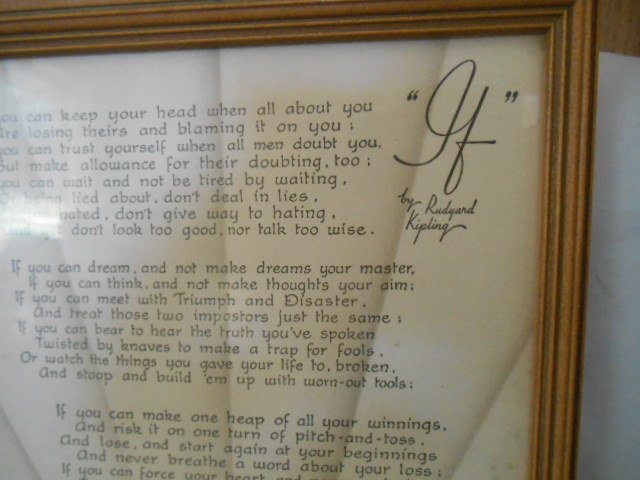 "If"
by Rudyard
Kipling
you can keep your head when all about you
Are losing theirs and blaming it on you;
you can trust yourself when all men doubt you,
But make allowance for their doubting, too;
you can wait and not be tired by waiting,
being lied about, don't deal in lies,
hated, don't give way to hating,
don't look too good, nor talk too wise.
If you can dream, and not make dreams your master,
If you can think, and not make thoughts your aim;
If you can meet with Triumph and Disaster.
And treat those two impostors just the same;
If you can bear to hear the truth you've spoken
Twisted by knaves to make a trap for fools.
Or watch the things you gave your life to, broken,
And stoop and build 'em up with worn-out tools;
If you can make one heap of all your winnings,
And risk it on one turn of pitch-and-toss.
And lose, and start again at your beginnings
And never breathe a word about your loss;
If you can force your heart and